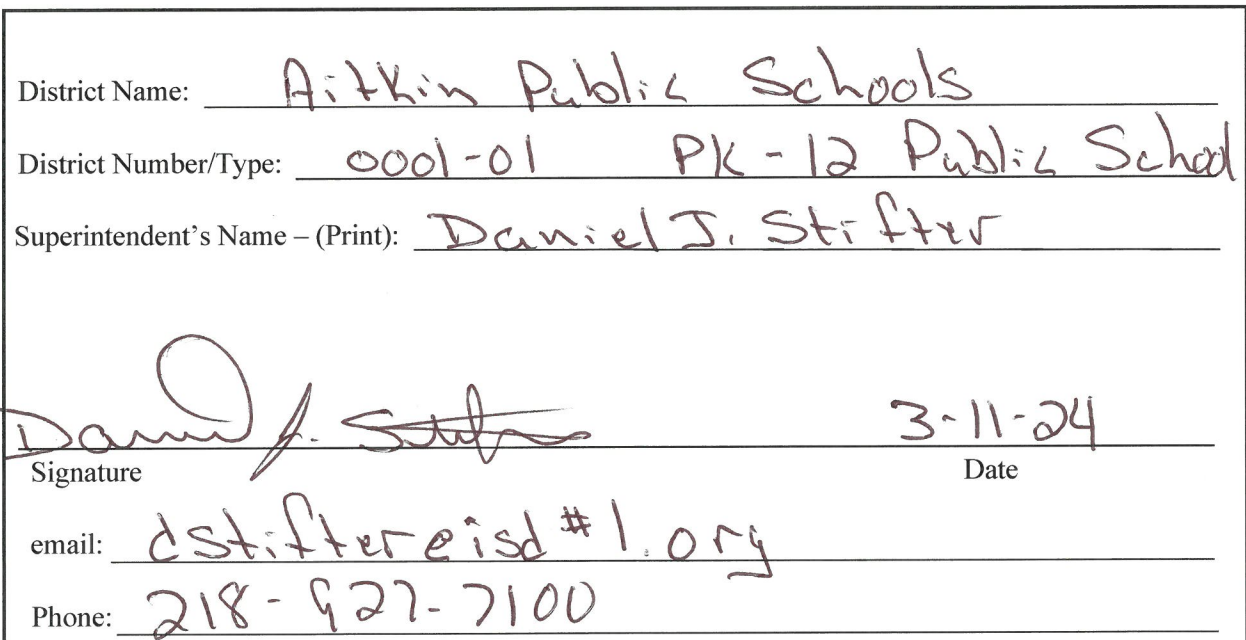 District Name: Aitkin Public Schools
District Number/Type: 0001-01 PK-12 Public School
Superintendent's Name – (Print): Daniel J. Stifter
Daniel J. Stifter 3-11-24
Signature Date
email: dstifter@isd#1.org
Phone: 218-927-7100